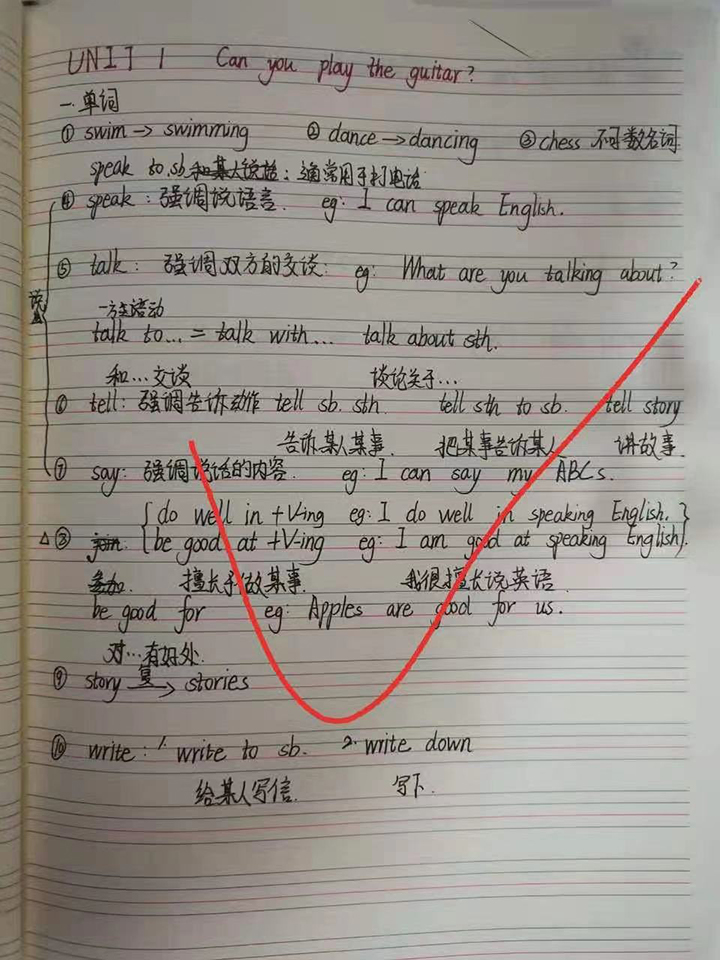 UNIT 1 Can you play the guitar?
一.单词
① swim → swimming ② dance → dancing ③ chess 不可数名词
speak to sb 和某人说话: 通常用于打电话
④ speak : 强调说语言. eg: I can speak English.
⑤ talk : 强调双方的交谈: eg: What are you talking about?
talk to... = talk with... talk about sth.
和...交谈 谈论关于...
⑥ tell: 强调告诉动作 tell sb. sth. tell sth to sb. tell story
告诉某人某事. 把某事告诉某人 讲故事.
⑦ say: 强调说话的内容. eg: I can say my ABCs.
do well in +V-ing eg: I do well in speaking English.
△ ⑧ join. be good at +V-ing eg: I am good at speaking English.
参加. 擅长于做某事. 我很擅长说英语.
be good for eg: Apples are good for us.
对...有好处.
⑨ story 复→ stories
⑩ write : 1. write to sb. 2. write down
给某人写信. 写下.